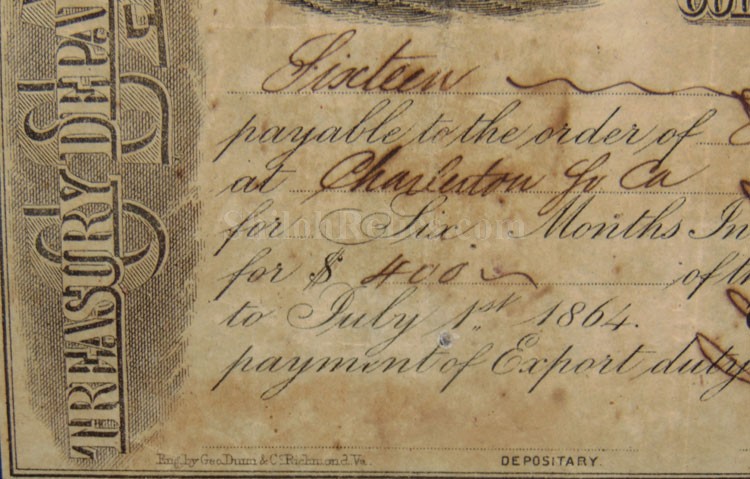 TREASURY DEPA
CON
Sixteen
payable to the order of
at Charleston So Ca
for Six Months In
for $ 400 of th
to July 1st 1864.
payment of Export duty
Eng. by Geo. Dunn & Co. Richmond. Va.
DEPOSITARY.